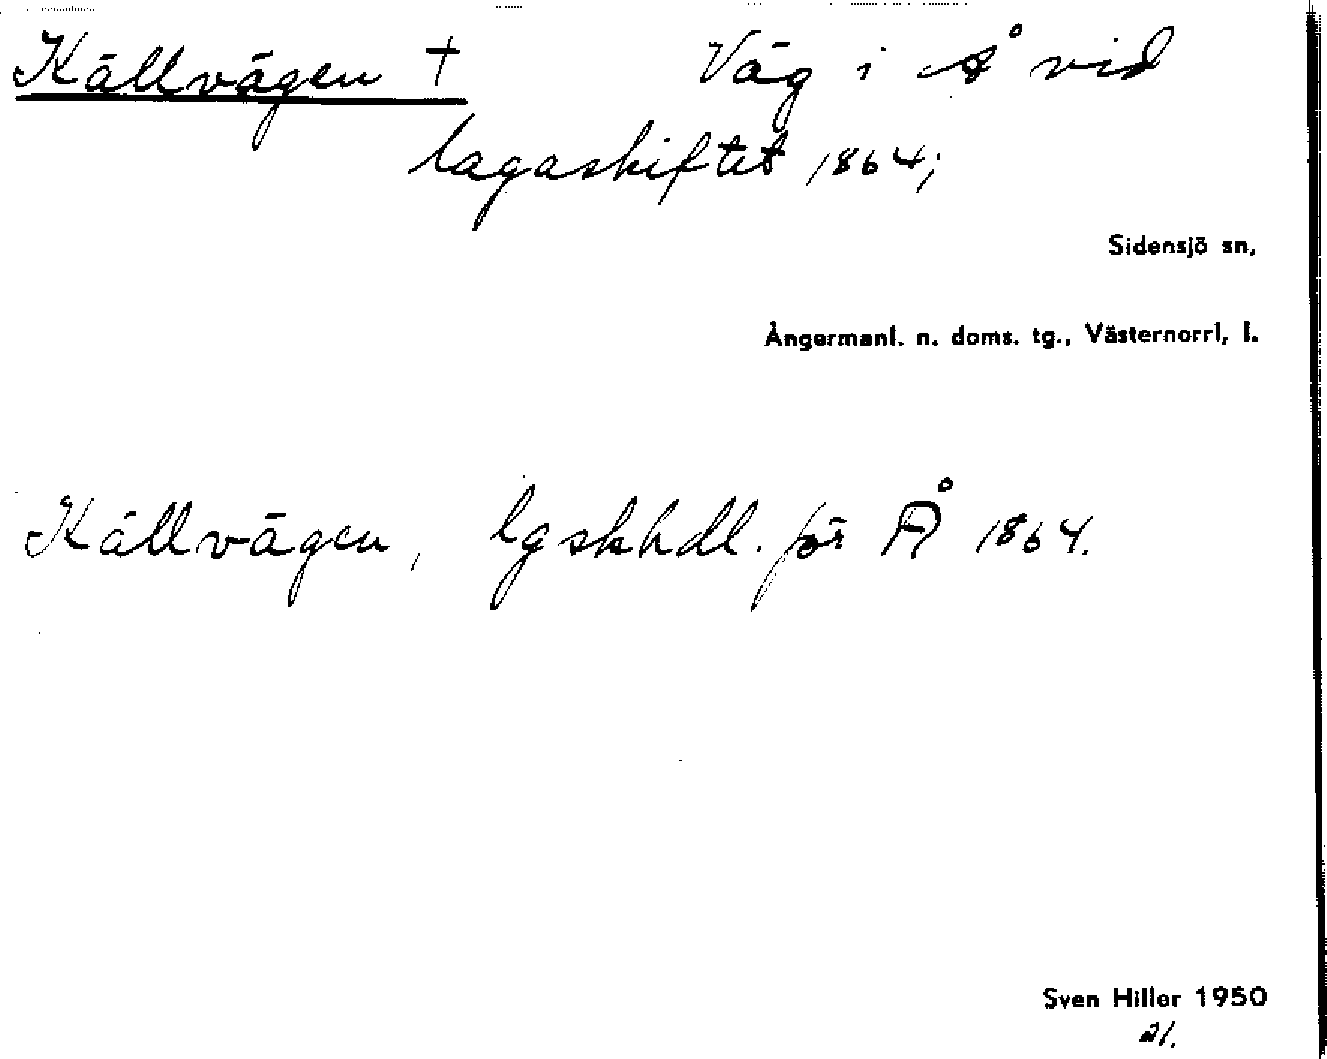 Källvägen † Väg i Å vid
lagaskiftet 1864;
Sidensjö sn,
Ångermanl. n. doms. tg., Västernorrl, l.
Källvägen, lgskhdl. för Å 1864.
Sven Hiller 1950
21.